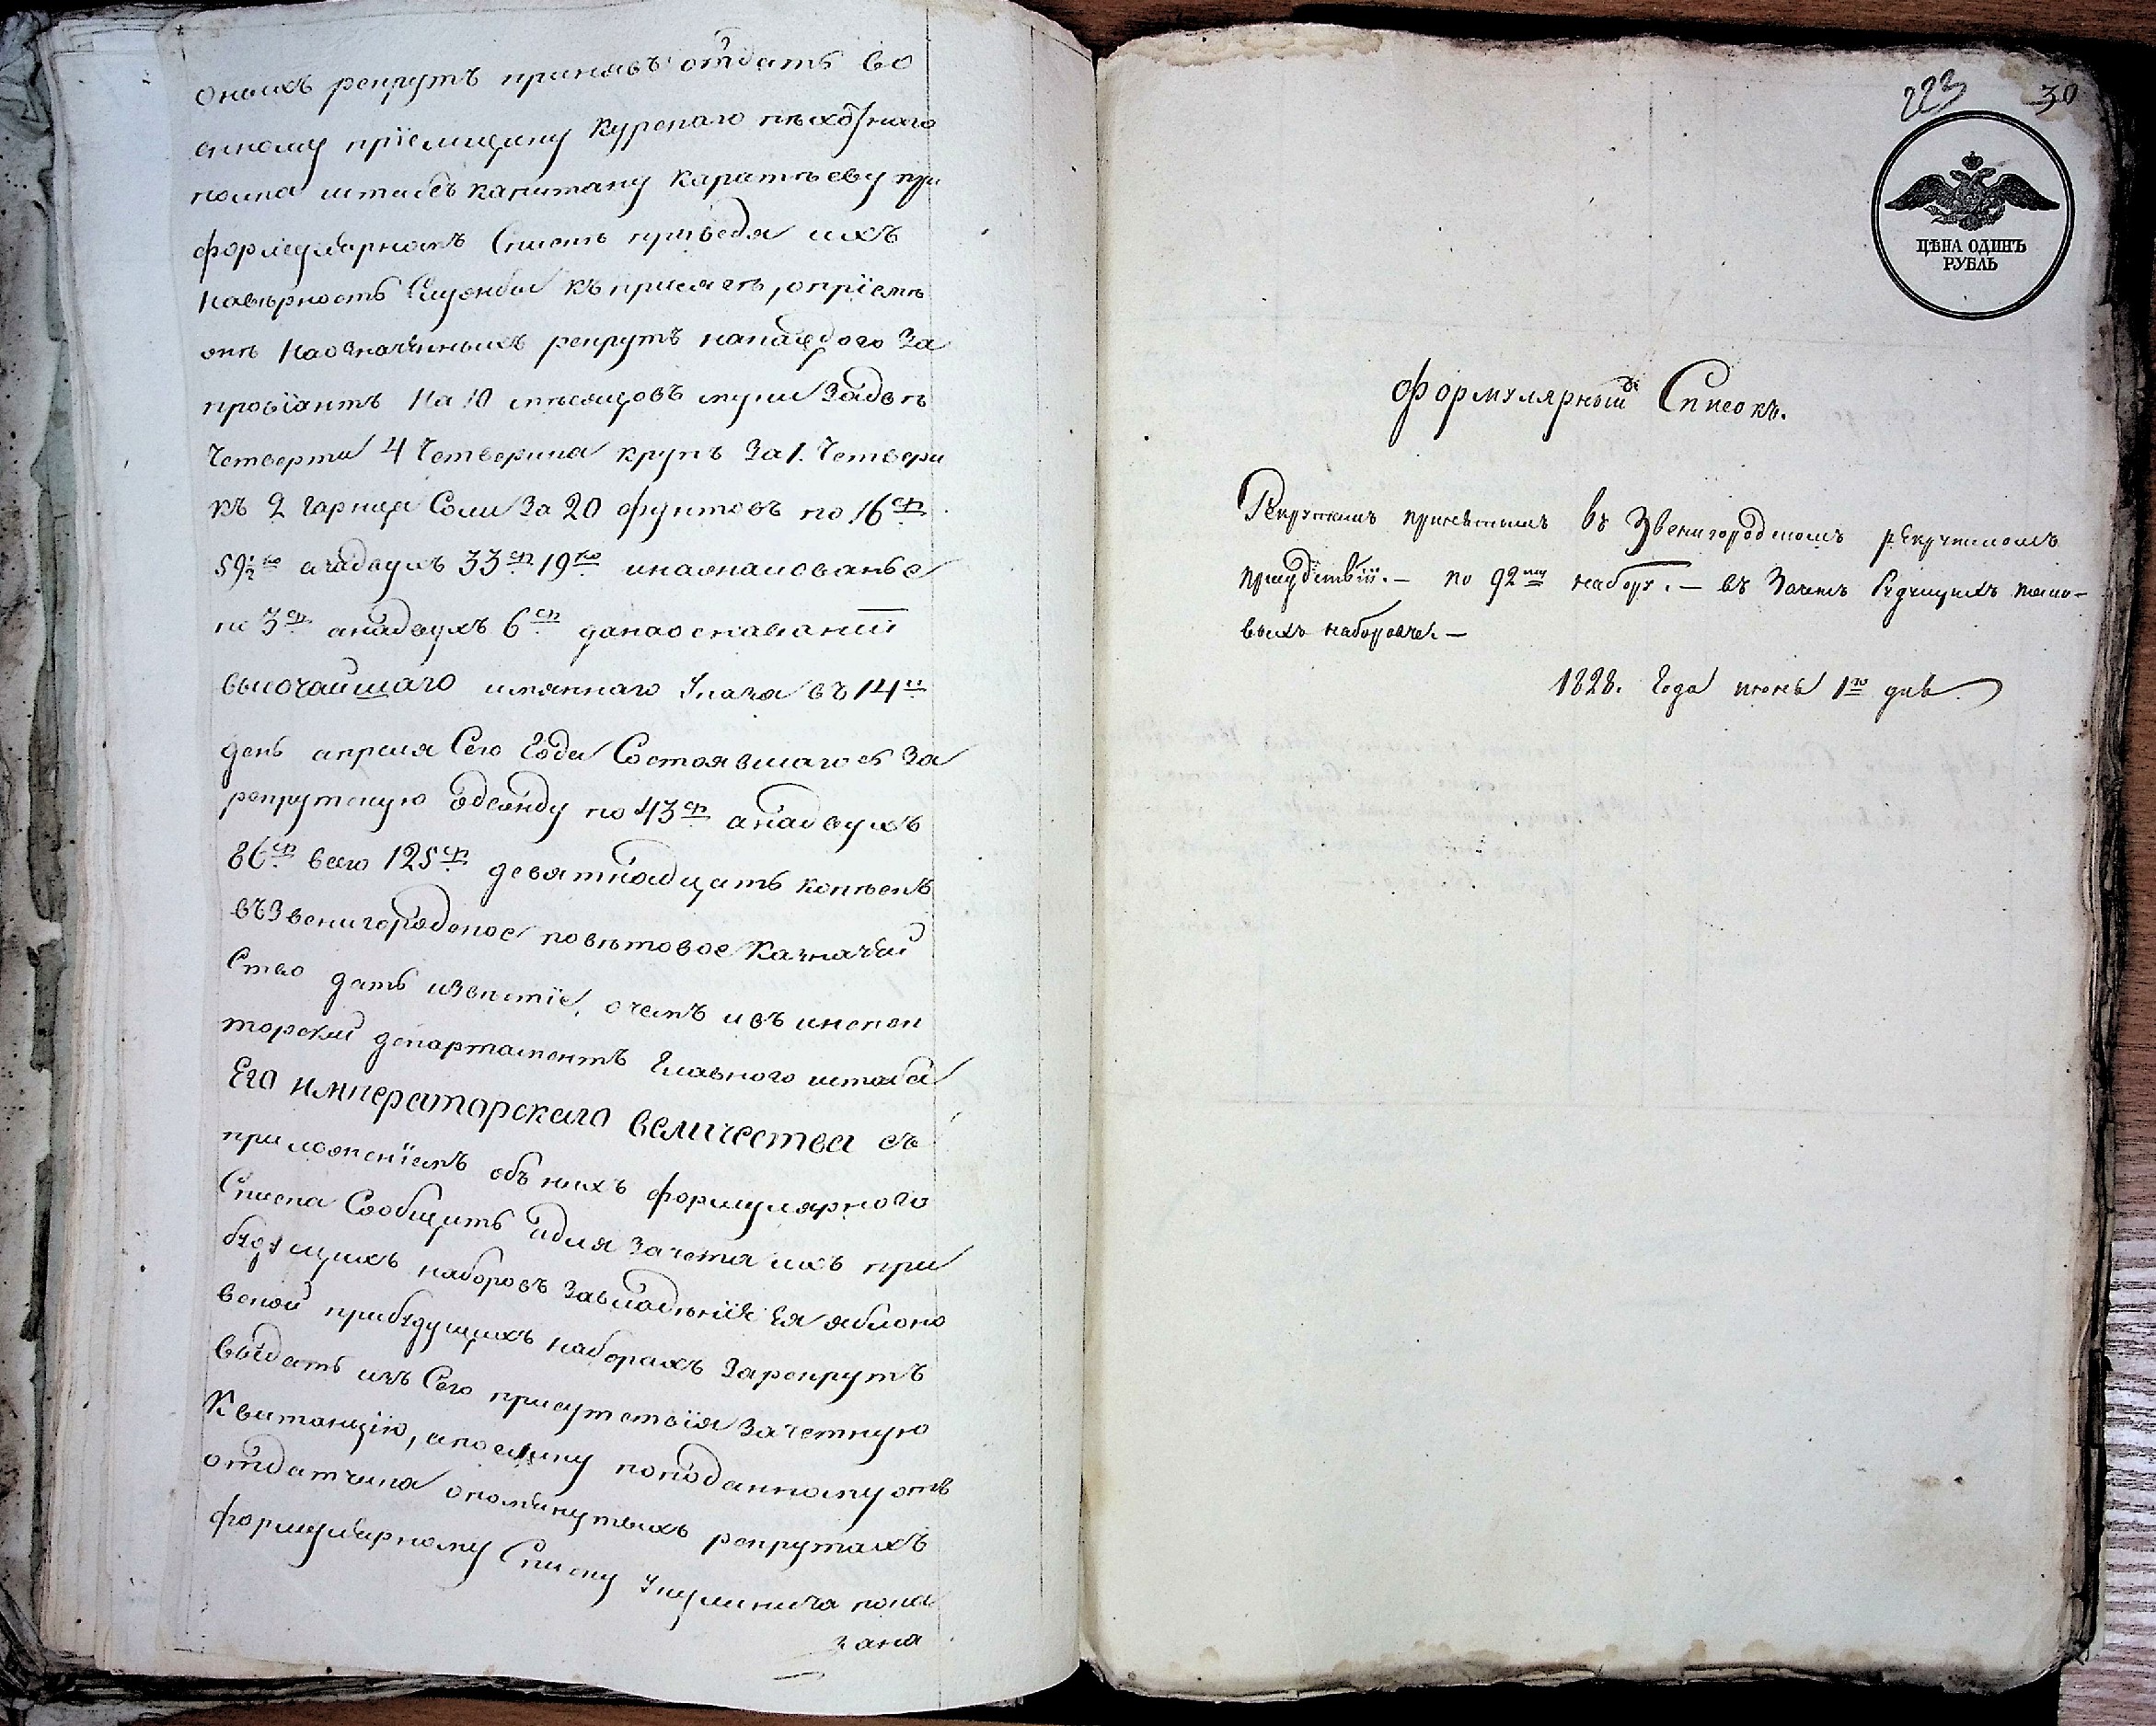 оныхъ рекрутъ принявъ отдать во
енному пріемщику Курскаго пѣхотнаго
полка штабсъ капитану Каратѣеву при
формулярномъ Спискѣ приведя ихъ
навѣрность Службы къ присягѣ, о пріемѣ
наозначенныхъ рекрутъ накаждого За
провіантъ На 10 мѣсяцовъ муки Задвѣ
Четверти 4 Четверика крупъ За 1. Четвери
къ 2 Гарнца Соли За 20 фунтовъ по 16 ру
59½ ко анадвухъ 33 ру 19 ко инажалованье
по 3 ру анадвухъ 6 ру данаоснованіи
высочайшаго имяннаго Указа въ 14 й
день апреля Сего Года Состоявшагося За
рекрутскую одежду по 43 ру анадвухъ
86 ру всего 125 ру девятнадцать копѣекъ
въЗвенигородское повѣтовое Казначей
Ство дать извѣстіе, очемъ ивъ инспек
торскій департаментъ Главного штаба
Его императорскаго величества съ
приложеніемъ объ нихъ формулярного
Списка Сообщить идля Зачета ихъ при
будущихъ наборовъ Завладѣніе Ея яблоно
вской прибудущихъ наборахъ Зарекрутъ
выдать изъ Сего присутствія Зачетную
Квитанцію, апоелику поподанному отъ
отдатчика опомянутыхъ рекрутахъ
формулярному Списку Укулинича пока
зана
223 30
ЦѢНА ОДИНЪ
РУБЛЬ
Формулярный Списокъ.
Рекрутамъ принятымъ въ Звенигородскомъ рекрутскомъ
присудствіи. — по 92 му набору. — въ Зачетъ будущихъ тако-
выхъ наборовъ. —
1828. Года июня 1 го дня